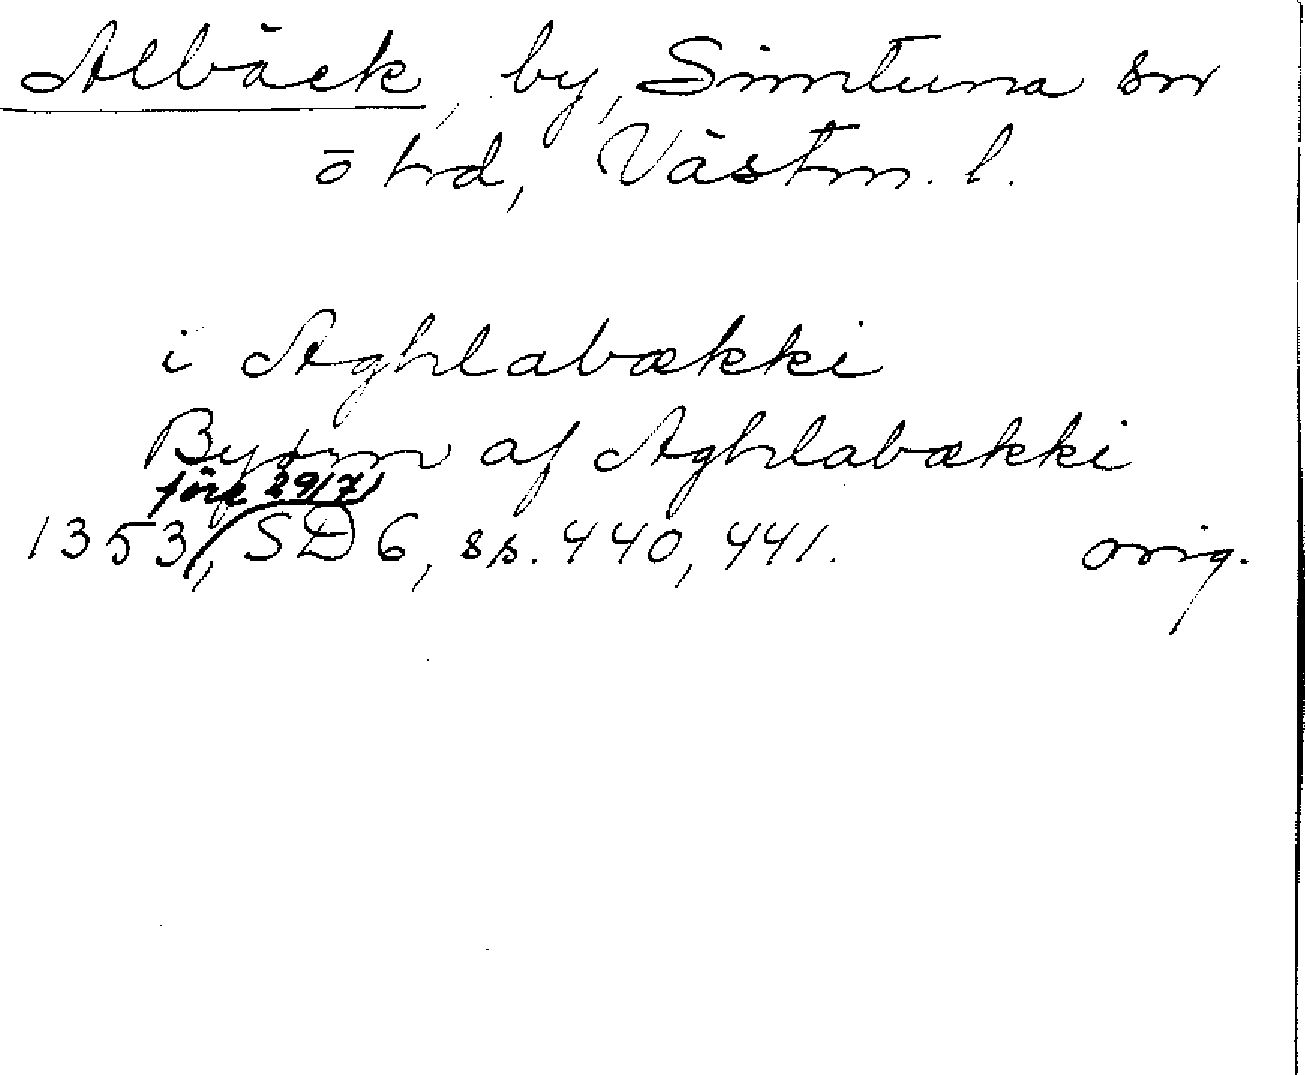 Albäck, by, Simtuna sn
ö hd, Västm. l.
i Aghlabækki
Byørn af Aghlabækki
före 29/7
1353, SD 6, ss. 440, 441. orig.